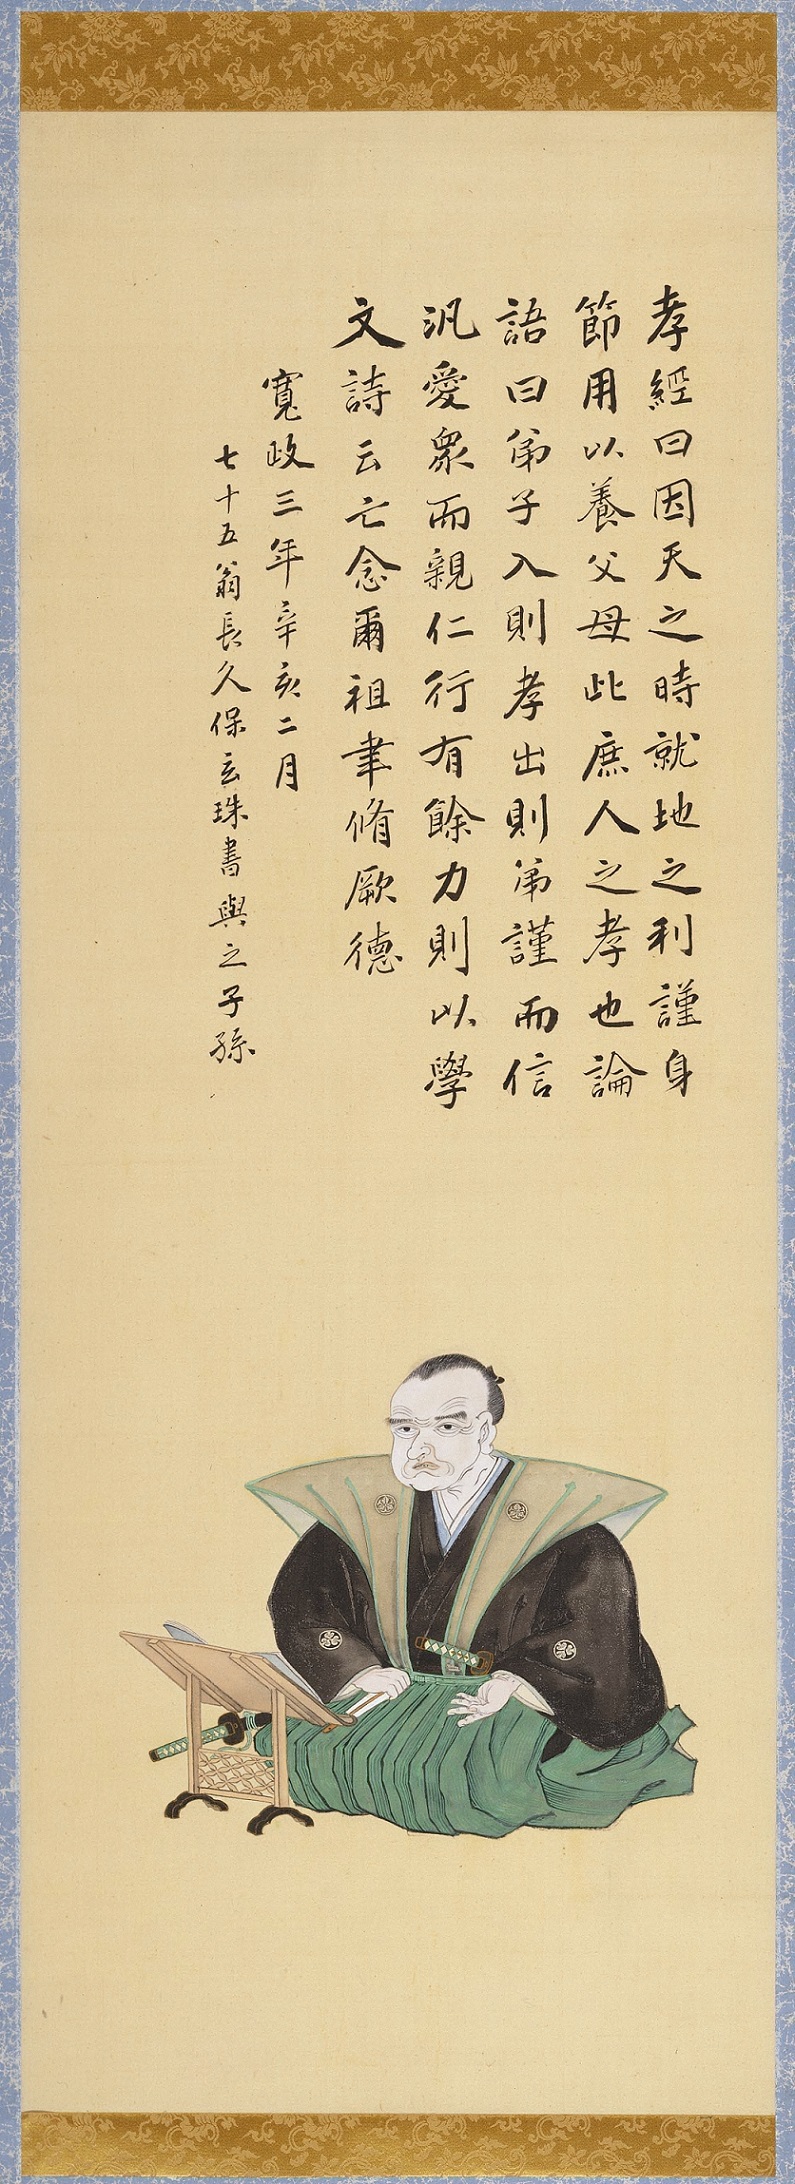 孝經曰因天之時就地之利謹身
節用以養父母此庶人之孝也論
語曰弟子入則孝出則弟謹而信
汎愛衆而親仁行有餘力則以學
文詩云亡念爾祖聿脩厥德
寬政三年辛亥二月
七十五翁長久保玄珠書與之子孫